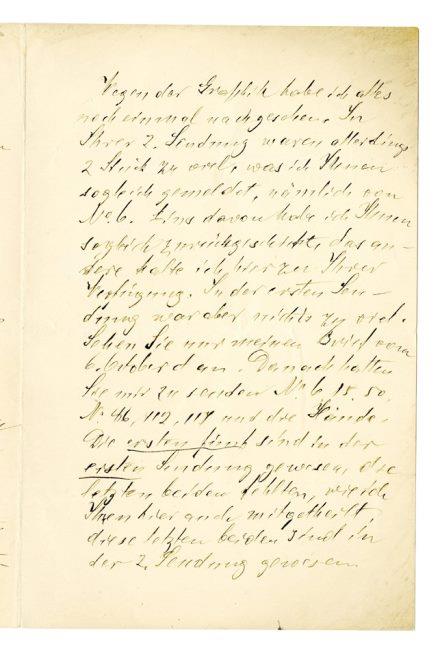 Wegen der Graphik habe ich alles
noch einmal nachgesehen. In
Ihrer 2. Sendung waren allerdings
2 Stück zu viel, was ich Ihnen
sogleich gemeldet, nämlich von
No. 6. Eins davon habe ich Ihnen
sogleich zurückgeschickt, das an-
dere halte ich hier zu Ihrer
Verfügung. In der ersten Sen-
dung war aber nichts zu viel.
Sehen Sie nur meinen Brief vom
6. Oktober d an. Danach hatten
Sie mir zu senden No. 6, 15, 50,
No 46, 112, 117 und die Hände.
Die ersten fünf sind in der
ersten Sendung gewesen, die
letzten beiden fehlten, wie ich
Ihnen hier auch mitgetheilt,
diese letzten beiden sind in
der 2. Sendung gewesen.